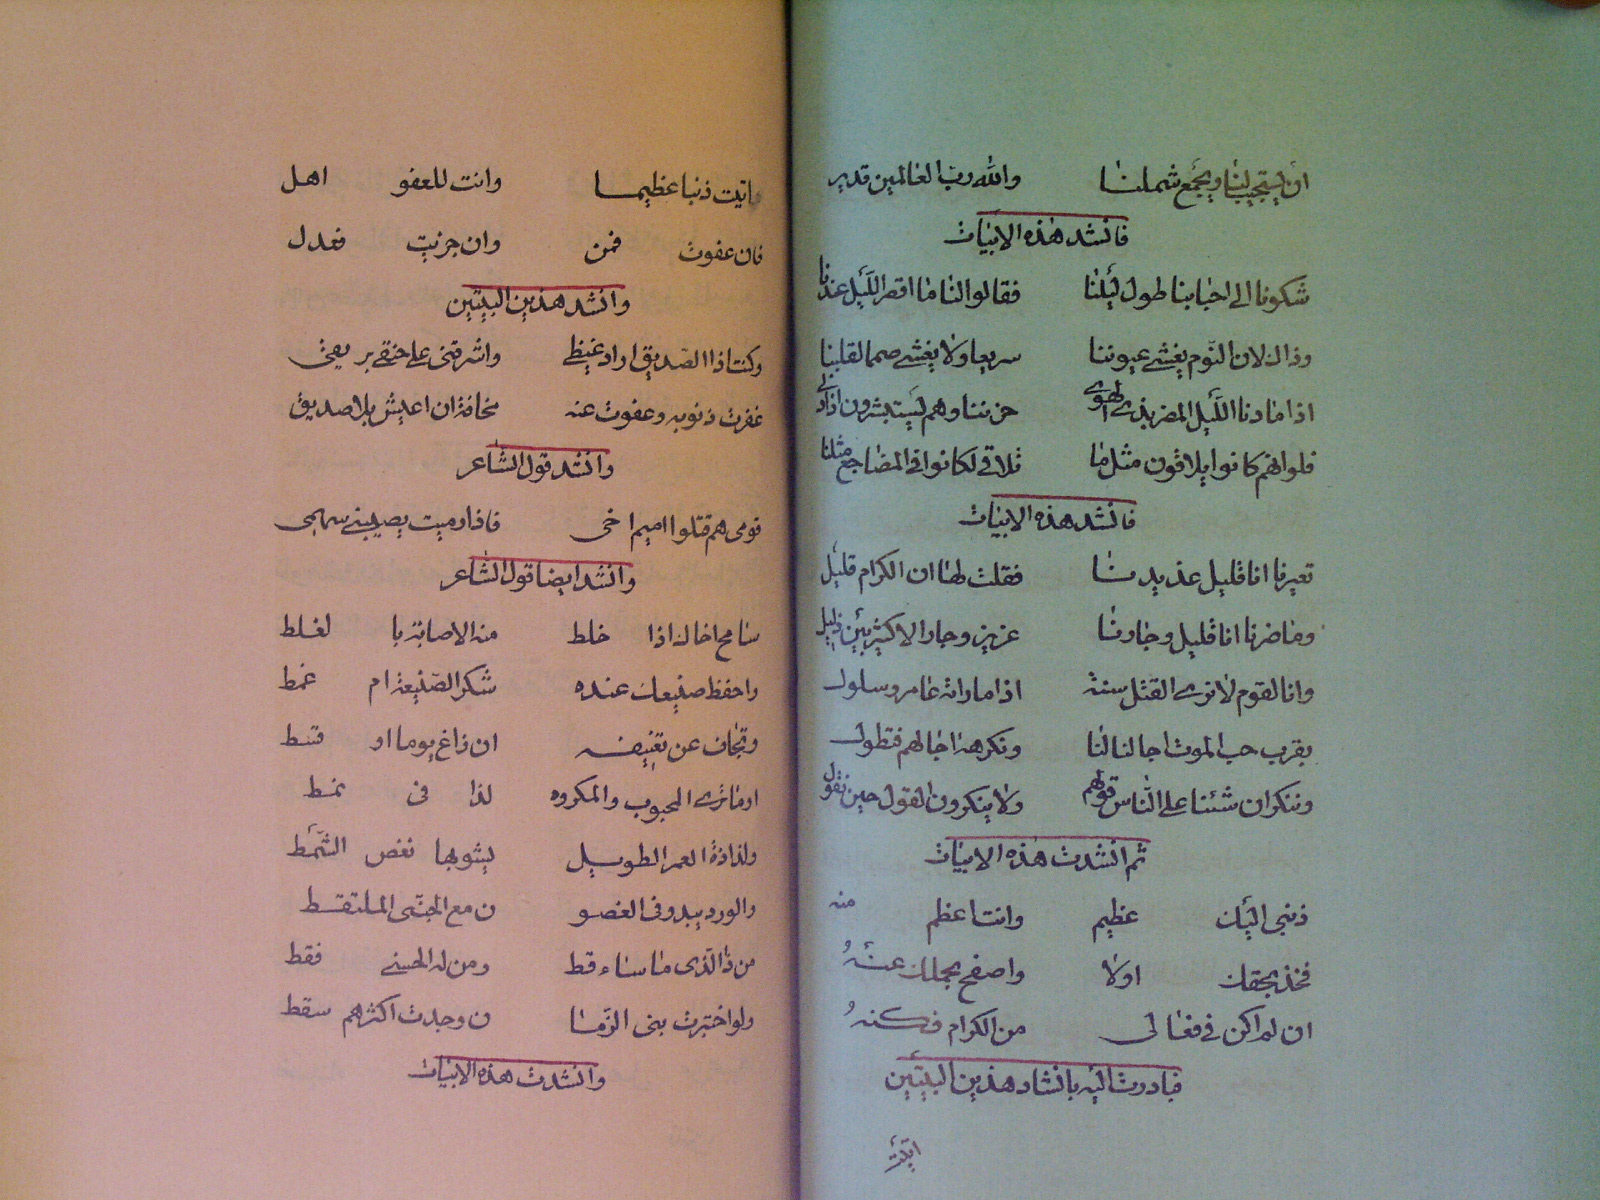 ان يستجيب لنا ويجمع شملنا والله رب العالمين قدير
فانشد هذه الابيات
شكونا الى احبابنا طول ليلنا فقالوا لنا ما اقصر الليل عندنا
وذاك لان النوم يغشى عيوننا سريعا ولا يغشى صما لقلبنا
اذا ما دنا الليل المضر بذى الهوى حزننا وهم يستبشرون اذا دنى
فلوانهم كانوا يلاقون مثل ما نلاقى لكانوا فى المضاجع مثلنا
فانشد هذه الابيات
تعيرنا انا قليل عديدنا فقلت لها ان الكرام قليل
وماضرنا انا قليل وجارنا عزيز وجار الاكثرين ذليل
وانا لقوم لا نرى القتل سنة اذا ما راته عامر وسلول
يقرب حب الموت اجالنا لنا وتكرهه اجالهم فتطول
وننكر ان شئنا على الناس قولهم ولا ينكرون القول حين نقول
ثم انشدت هذه الابيات
ذنبى اليك عظيم وانت اعظم منه
فخذ بحقك اولا واصفح بحلمك عنه
ان لم اكن فى فعالى من الكرام فكنه
فبادرت اليه بانشاد هذين البيتين
اتيت
اتيت ذنبا عظيما وانت للعفو اهل
فان عفوت فمن وان جزيت فعدل
وانشد هذين البيتين
وكنت اذا الصديق اراد غيظى واشرقنى على حنق بريقى
غفرت ذنوبه وعفوت عنه مخافة ان اعيش بلا صديق
وانشد قول الشاعر
قومى هم قتلوا اميم اخى فاذا رميت يصيبنى سهمى
وانشد ايضا قول الشاعر
سامح اخاك اذا خلط منه الاصابة با لغلط
واحفظ صنيعك عنده شكر الصنيعة ام غمط
وتجاف عن تعنيفه ان زاغ يوما او قسط
اوما ترى المحبوب والمكروه لذا فى نمط
ولذاذة العمر الطويل يشوبها نغص الشمط
والورد يبدو فى الغصو ن مع الجنى الملتقط
من ذا الذى ما ساء قط ومن له الحسنى فقط
ولو اختبرت بنى الزما ن وجدت اكثرهم سقط
وانشدت هذه الابيات